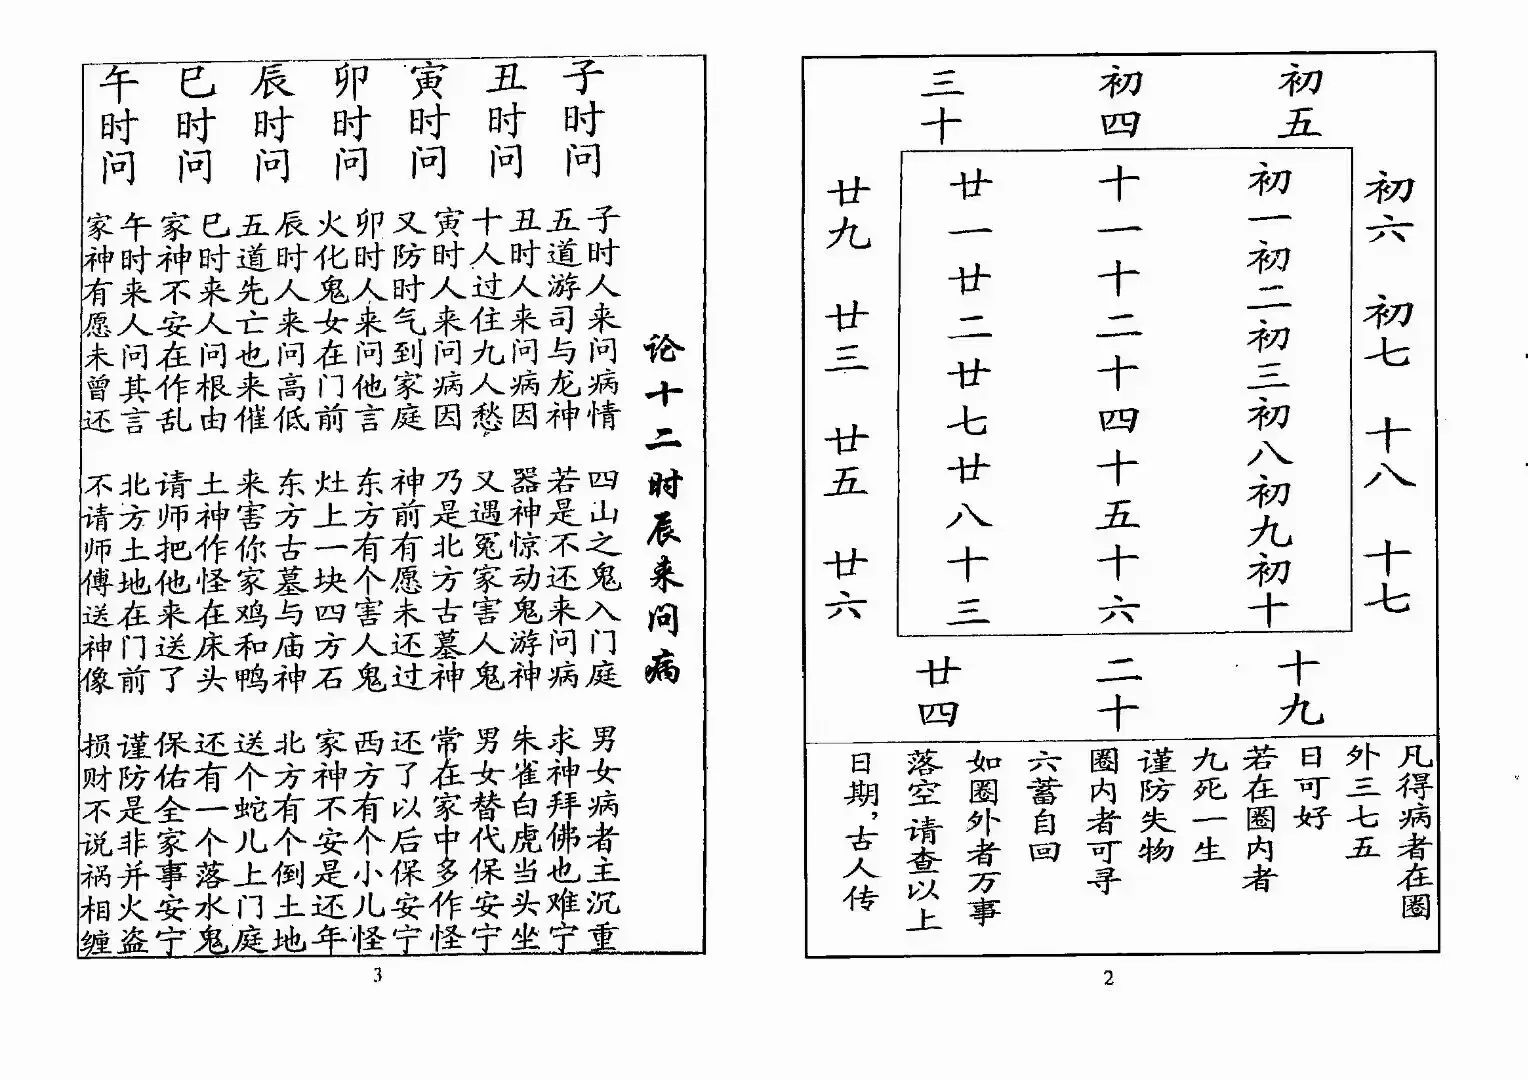 初五
初四
三十
初六 初七 十八 十七
初一初二初三初八初九初十
十一十二十四十五十六
廿一廿二廿七廿八十三
廿九 廿三 廿五 廿六
十九
二十
廿四
凡得病者在圈
外三七五
日可好
若在圈内者
九死一生
谨防失物
圈内者可寻
六蓄自回
如圈外者万事
落空请查以上
日期,古人传
2
论十二时辰来问病
子时问
丑时问
寅时问
卯时问
辰时问
巳时问
午时问
子时人来问病情 四山之鬼入门庭 男女病者主沉重
五道游司与龙神 若是不还来问病 求神拜佛也难宁
丑时人来问病因 器神惊动鬼游神 朱雀白虎当头坐
十人过住九人愁 又遇冤家害人鬼 男女替代保安宁
寅时人来问病因 乃是北方古墓神 常在家中多作怪
又防时气到家庭 神前有愿未还过 还了以后保安宁
卯时人来问他言 东方有个害人鬼 西方有个小儿怪
火化鬼女在门前 灶上一块四方石 家神不安是还年
辰时人来问高低 东方古墓与庙神 北方有个倒土地
五道先亡也来催 来害你家鸡和鸭 送个蛇儿上门庭
巳时来人问根由 土神作怪在床头 还有一个落水鬼
家神不安在作乱 请师把他来送了 保佑全家事安宁
午时来人问其言 北方土地在门前 谨防是非并火盗
家神有愿未曾还 不请师傅送神像 损财不说祸相缠
3